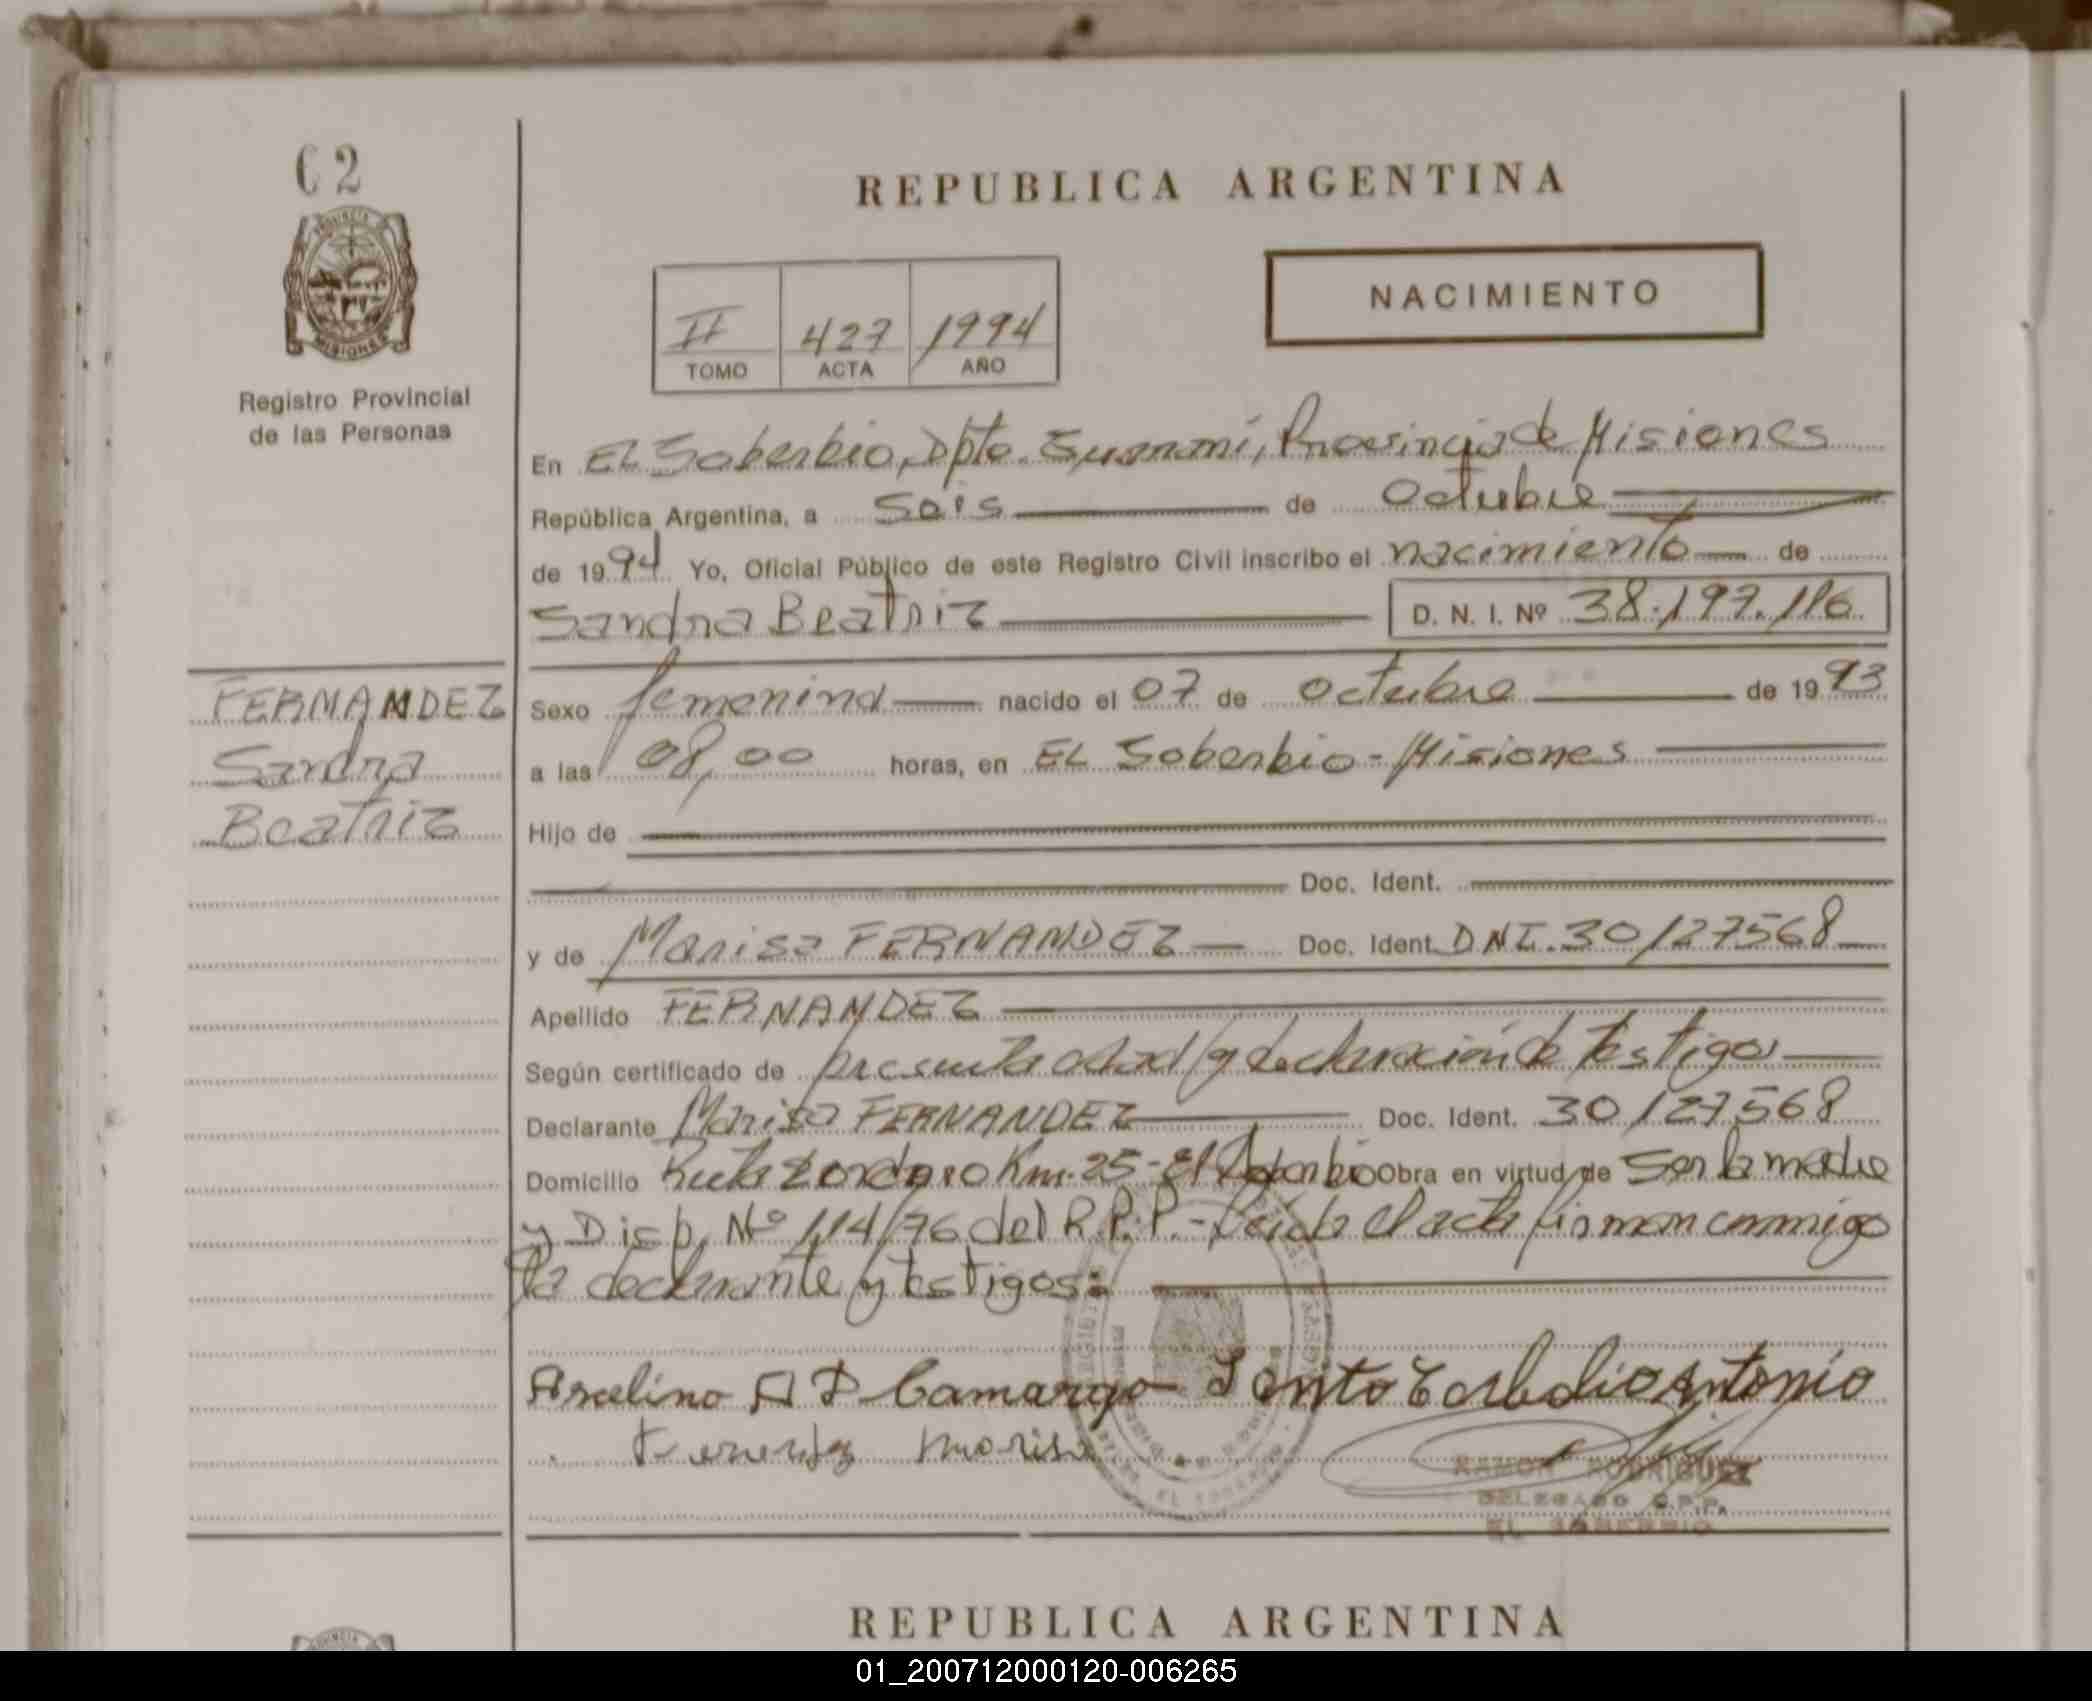 62
PROVINCIA
MISIONES
Registro Provincial
de las Personas
FERNANDEZ
Sandra
Beatriz
REPUBLICA ARGENTINA
II 427 1994
TOMO ACTA AÑO
NACIMIENTO
En EL Soberbio, Dpto. Guaraní, Provincia de Misiones
República Argentina, a Seis de Octubre
de 1994 Yo, Oficial Público de este Registro Civil inscribo el nacimiento de
Sandra Beatriz D. N. I. Nº 38.197.116
Sexo femenino nacido el 07 de Octubre de 1993
a las 08,00 horas, en EL Soberbio - Misiones
Hijo de
Doc. Ident.
y de Marisa FERNANDEZ Doc. Ident. DNI. 30127568
Apellido FERNANDEZ
Según certificado de presunta edad y declaración de testigos
Declarante Marisa FERNANDEZ Doc. Ident. 30127568
Domicilio Ruta Km. 25 - El Soberbio Obra en virtud de Ser la madre
y Disp. Nº 114/76 del R.P.P. - Leida el acta firman conmigo
la declarante y testigos:
Arcelino A D Camargo Antonio
RAMON RODRIGUEZ
DELEGADO R.P.P.
EL SOBERBIO
REPUBLICA ARGENTINA
01_200712000120-006265